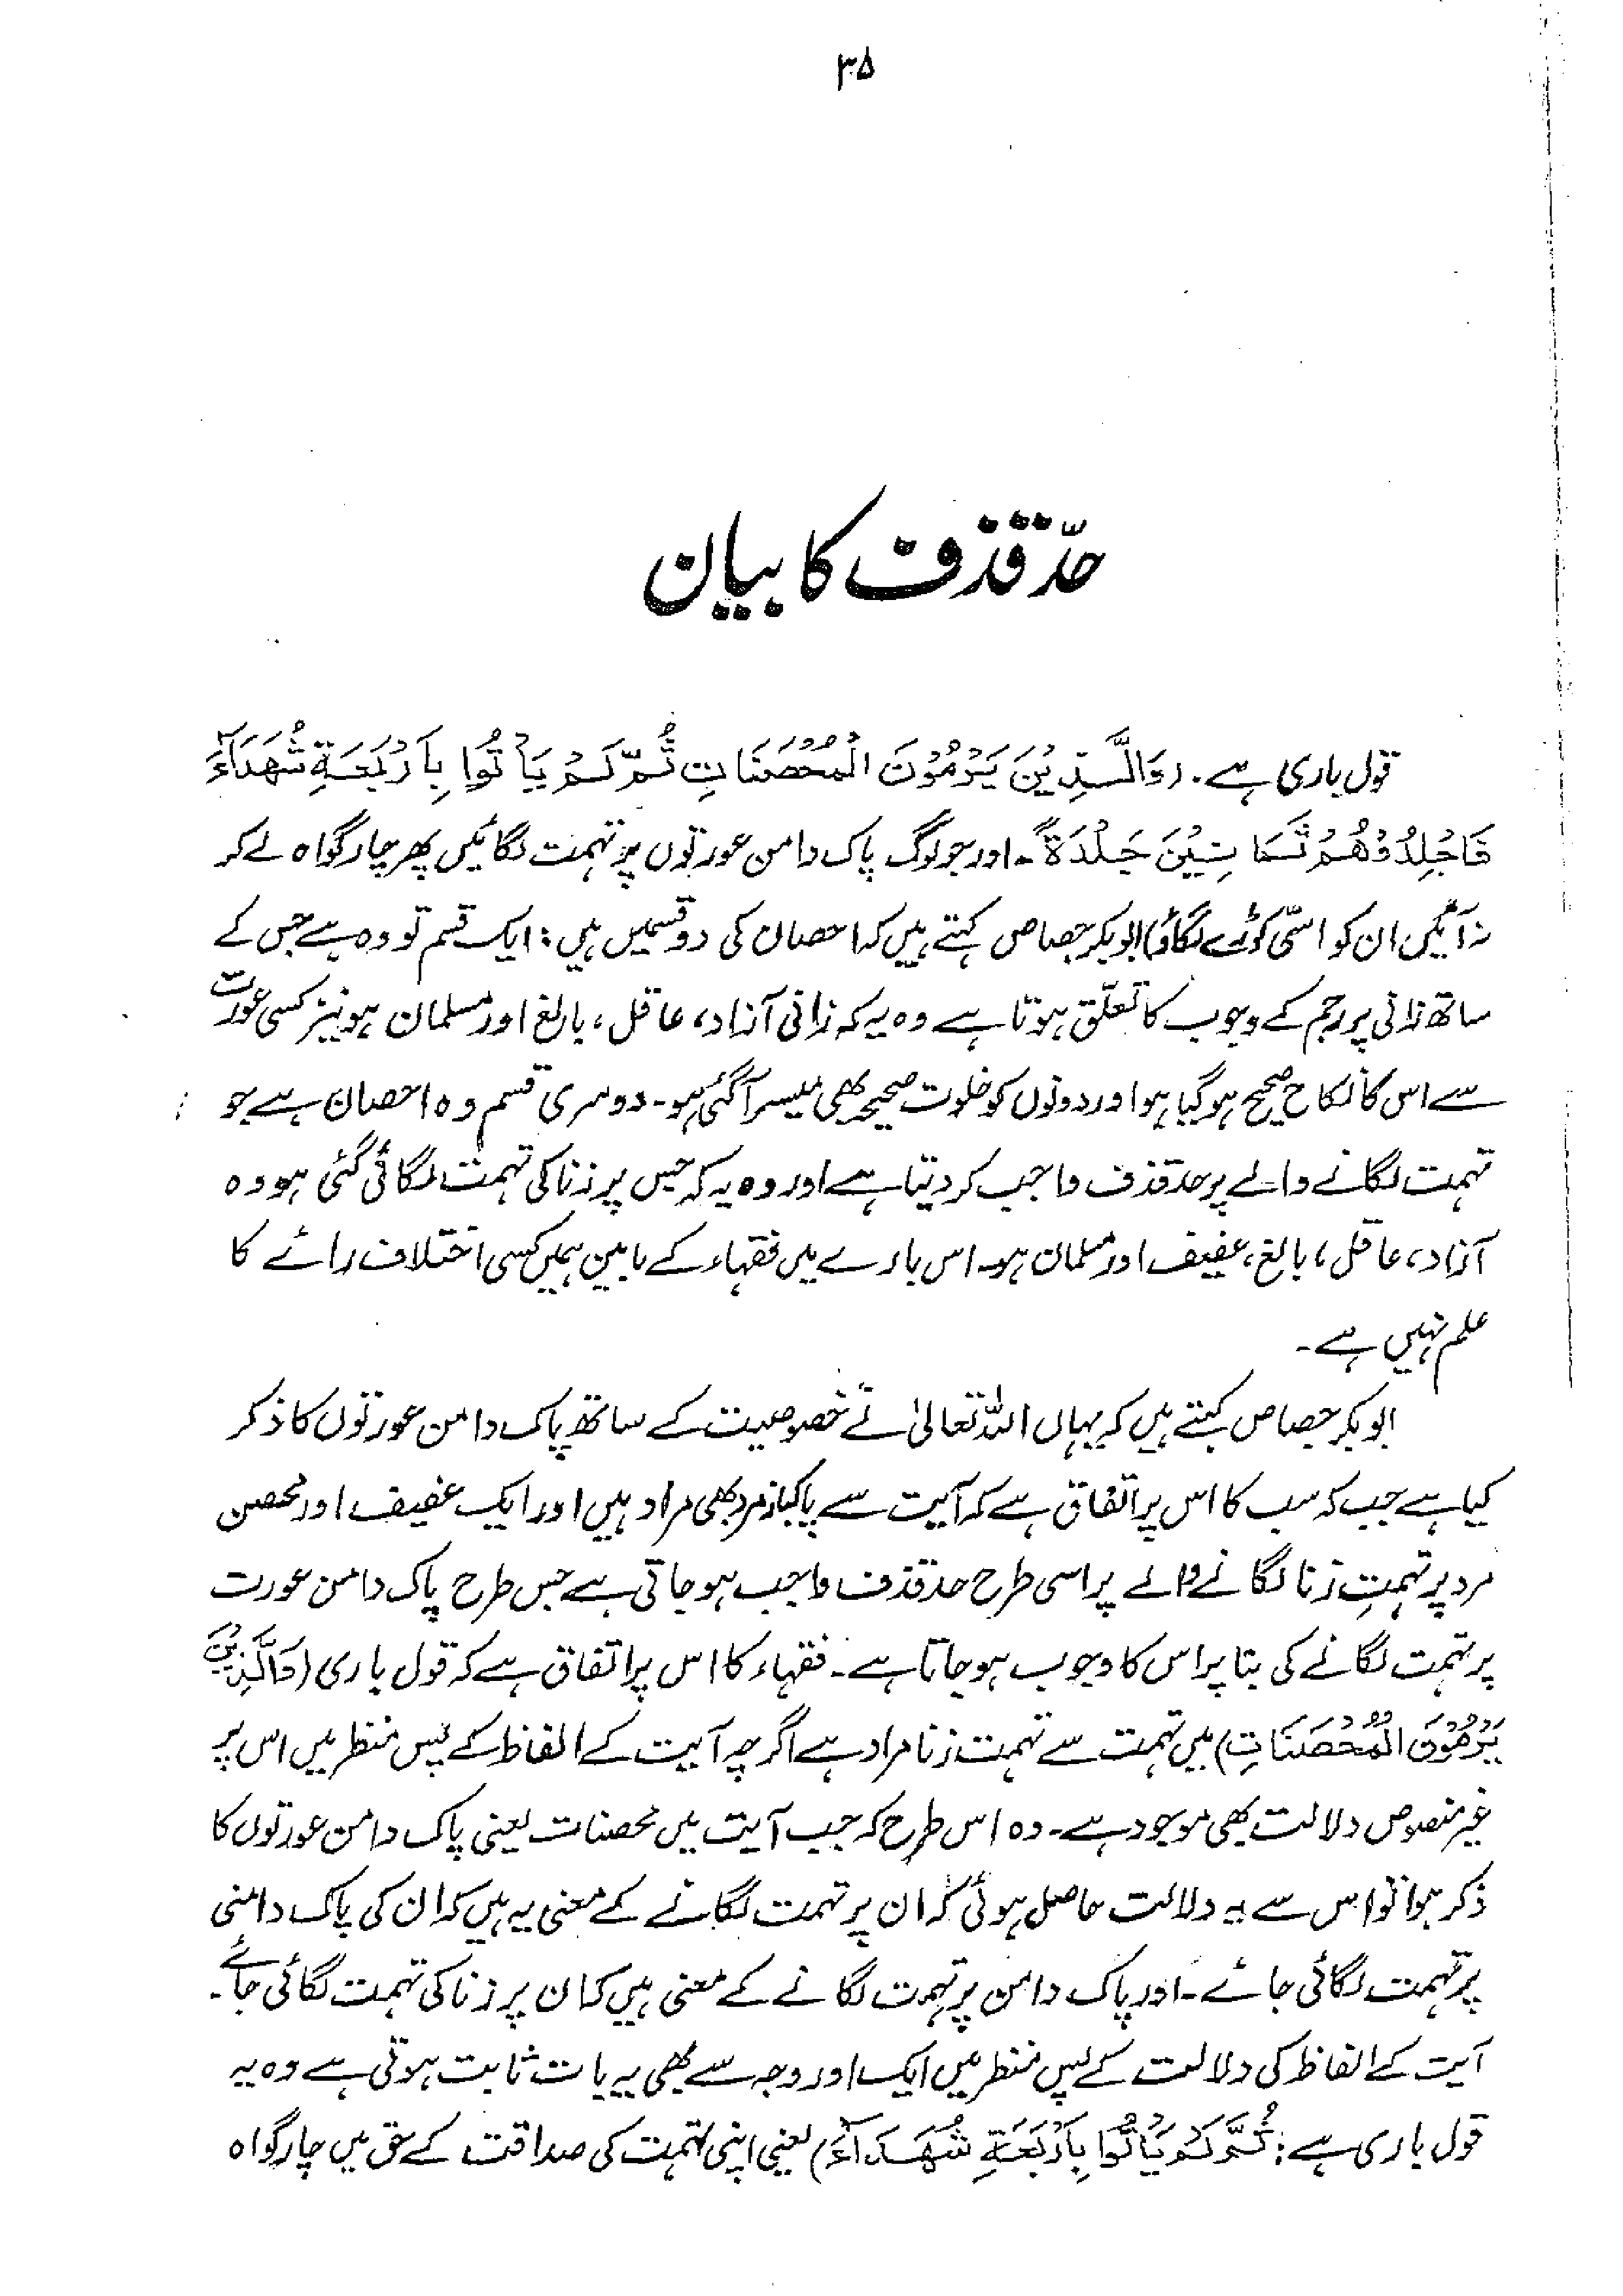 ۳۵
حدّ قذف کا بیان
قول باری ہے۔ (وَالَّذِیْنَ یَرْمُوْنَ الْمُحْصَنَاتِ ثُمَّ لَمْ یَأْتُوا بِاَرْبَعَةِ شُهَدَآءَ
فَاجْلِدُوْهُمْ ثَمَانِیْنَ جَلْدَةً۔ اور جو لوگ پاک دامن عورتوں پر تہمت لگائیں پھر چار گواہ لے کر
نہ آئیں ان کو اسّی کوڑے لگاؤ) ابوبکر جصاص کہتے ہیں کہ احصان کی دو قسمیں ہیں : ایک قسم تو وہ ہے جس کے
ساتھ زانی پر رجم کے وجوب کا تعلّق ہوتا ہے وہ یہ کہ زانی آزاد، عاقل، بالغ اور مسلمان ہو نیز کسی عورت
سے اس کا نکاح صحیح ہو گیا ہو اور دونوں کو خلوت صحیحہ بھی میسر آگئی ہو۔ دوسری قسم وہ احصان ہے جو
تہمت لگانے والے پر حد قذف واجب کر دیتا ہے اور وہ یہ کہ جس پر زنا کی تہمت لگائی گئی ہو وہ
آزاد، عاقل، بالغ، عفیف اور مسلمان ہو۔ اس بارے میں فقہاء کے مابین ہمیں کسی اختلاف رائے کا
علم نہیں ہے۔
ابوبکر جصاص کہتے ہیں کہ یہاں اللہ تعالیٰ نے خصوصیت کے ساتھ پاک دامن عورتوں کا ذکر
کیا ہے جب کہ سب کا اس پر اتفاق ہے کہ آیت سے پاکباز مرد بھی مراد ہیں اور ایک عفیف اور محصن
مرد پر تہمتِ زنا لگانے والے پر اسی طرح حد قذف واجب ہو جاتی ہے جس طرح پاک دامن عورت
پر تہمت لگانے کی بنا پر اس کا وجوب ہو جاتا ہے۔ فقہاء کا اس پر اتفاق ہے کہ قول باری (وَالَّذِیْنَ
یَرْمُوْنَ الْمُحْصَنَاتِ) میں تہمت سے تہمت زنا مراد ہے اگرچہ آیت کے الفاظ کے پس منظر میں اس پر
غیر منصوص دلالت بھی موجود ہے۔ وہ اس طرح کہ جب آیت میں محصنات یعنی پاک دامن عورتوں کا
ذکر ہوا تو اس سے یہ دلالت حاصل ہوئی کہ ان پر تہمت لگانے کے معنی یہ ہیں کہ ان کی پاک دامنی
پر تہمت لگائی جائے۔ اور پاک دامن پر تہمت لگانے کے معنی ہیں کہ ان پر زنا کی تہمت لگائی جائے۔
آیت کے الفاظ کی دلالت کے پس منظر میں ایک اور وجہ سے بھی یہ بات ثابت ہوتی ہے وہ یہ
قول باری ہے : ثُمَّ لَمْ یَأْتُوا بِاَرْبَعَةِ شُهَدَآءَ) یعنی اپنی تہمت کی صداقت کے حق میں چار گواہ